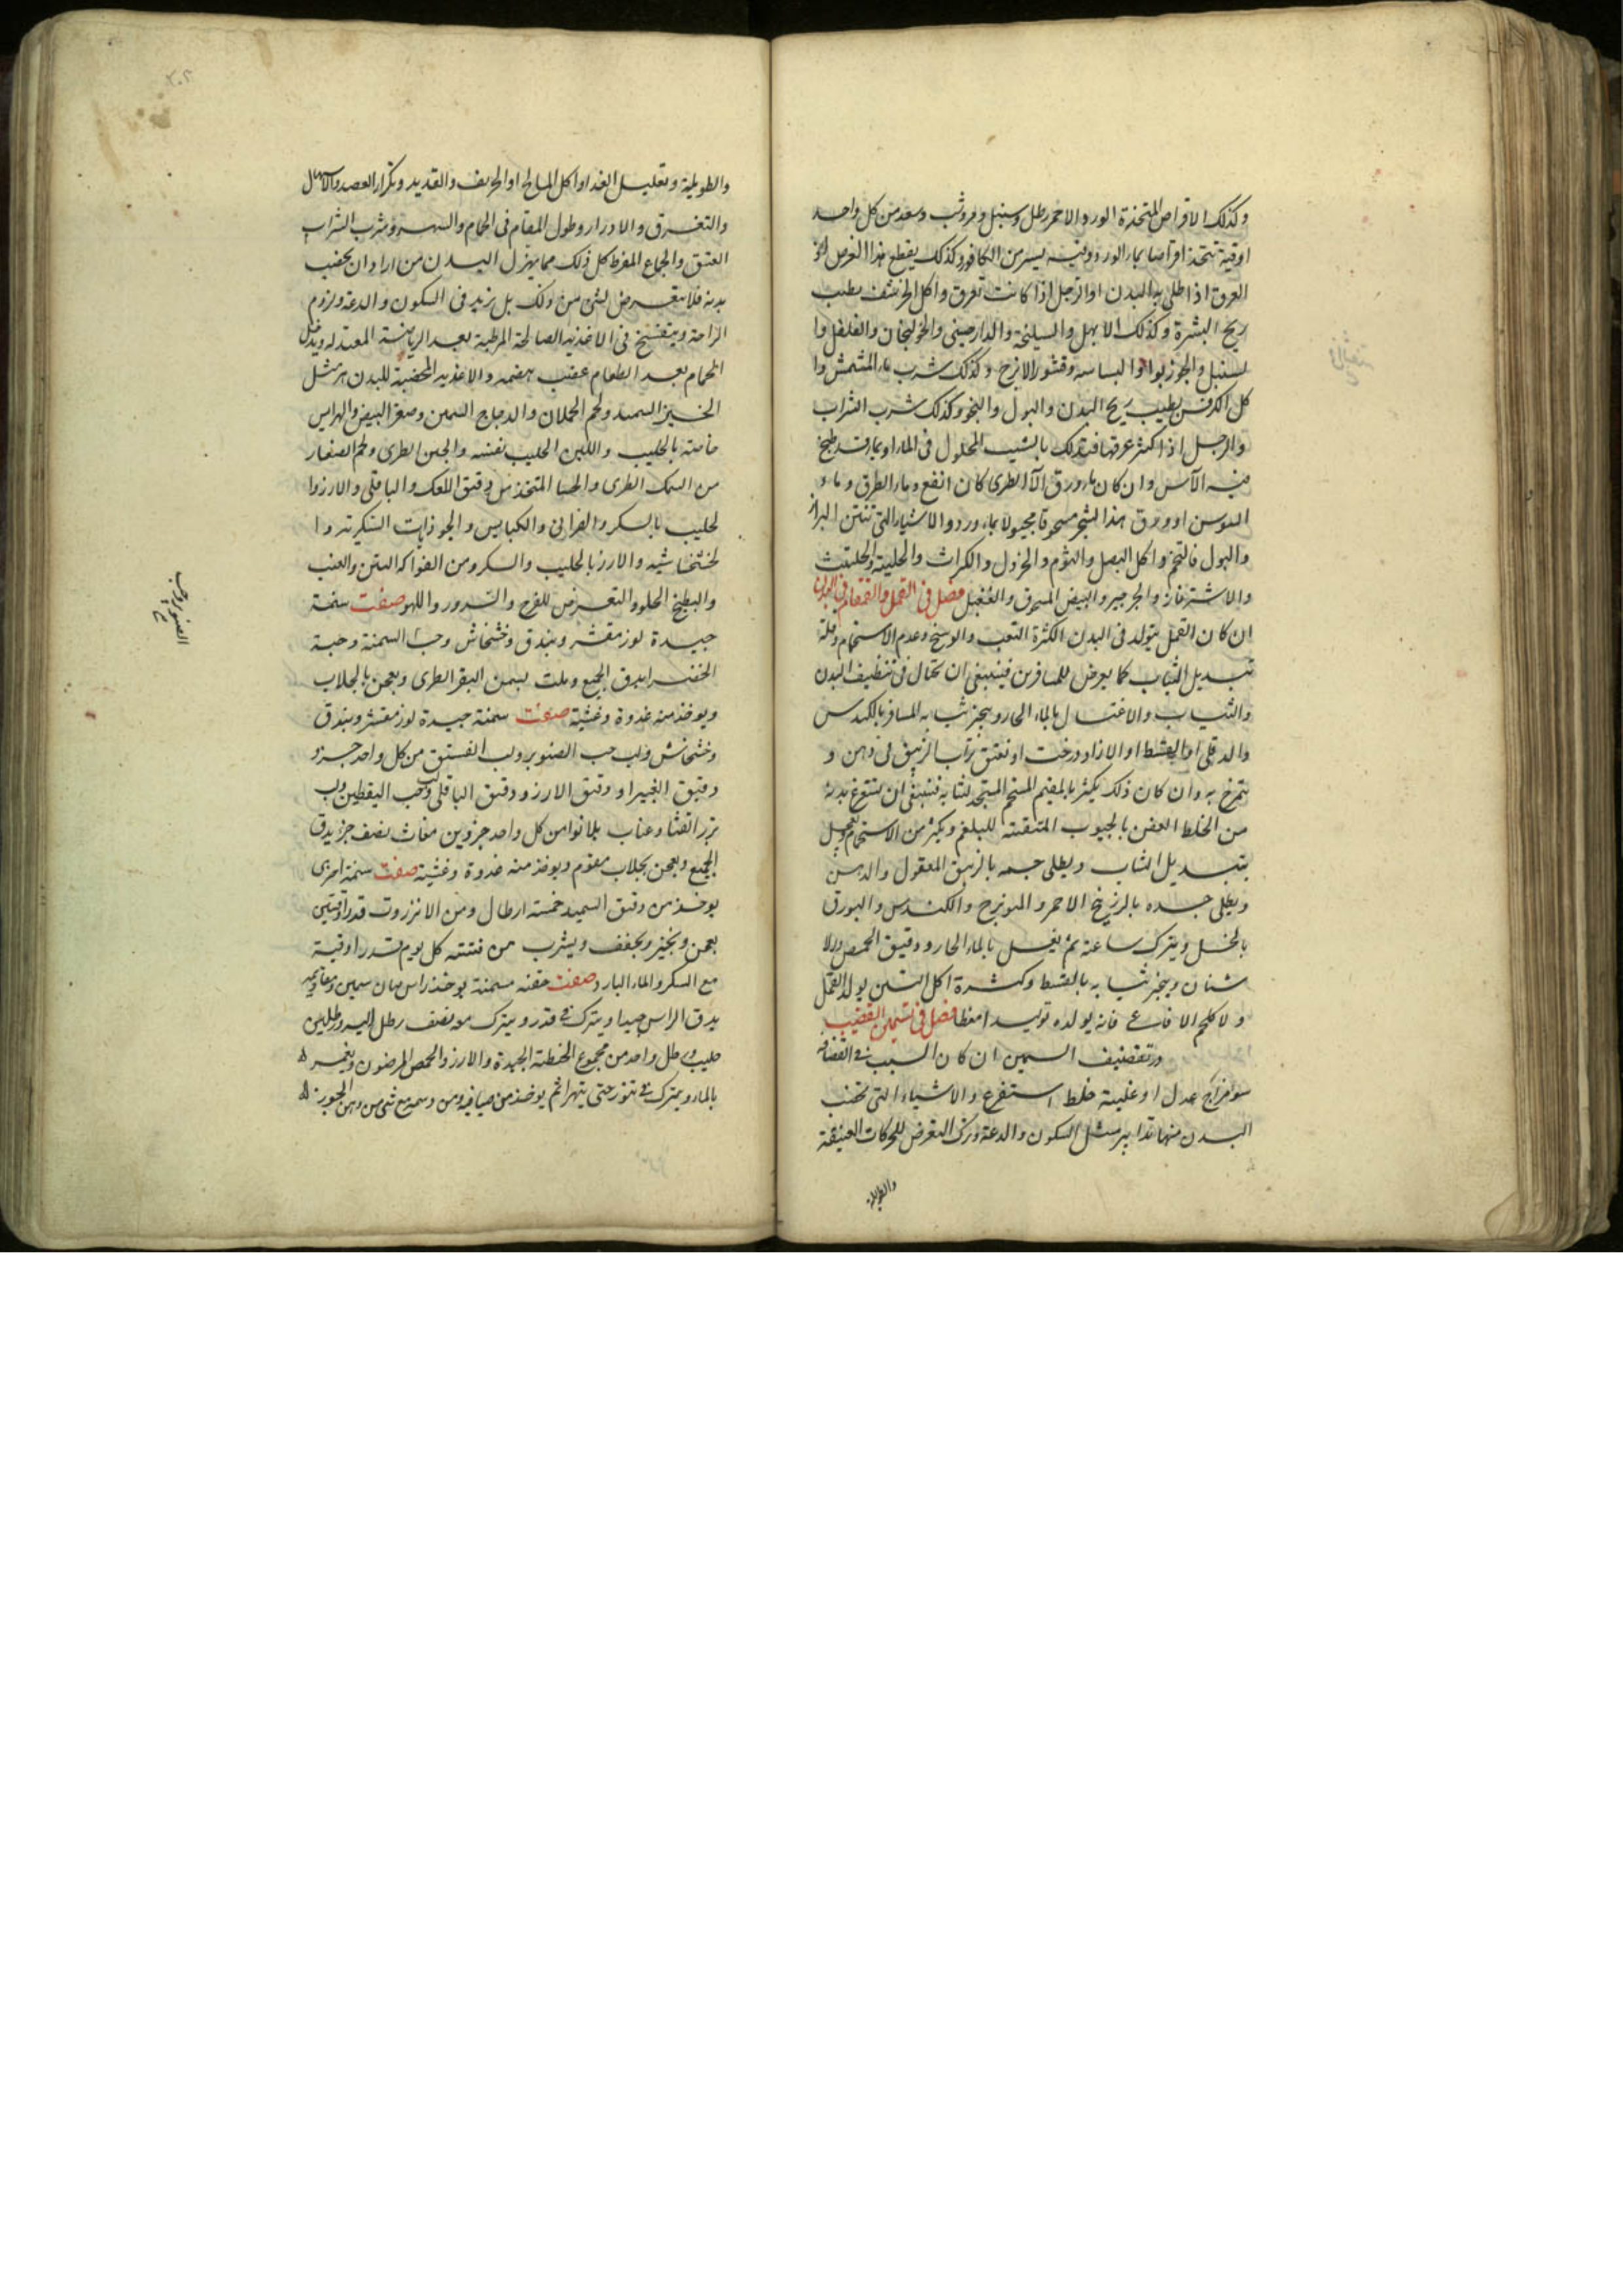 وكذلك الاقراص المتخذة الورد الاحمر رطل وسنبل و وشب وسعد من كل واحد
اوقية تتخذ اقراصا بماء الورد يسير من الكافور وكذلك يقطع هذا العرض
العرق اذا طلى به البدن او الرجل اذا كانت تعرق واكل الحرشف يطيب
ريح البشرة وكذلك الابهل والسليخة والدارصينى والخولنجان والفلفل وا
لسنبل والجوزبوا والبسباسه وقشور الاترج وكذلك شرب ماء المشمش وا
كل الكرفس يطيب ريح البدن والبول والنجو وكذلك شرب الشراب
والرجل اذا كثر عرقها فتدلك بالشب المحلول فى الماء او بماء قد طبخ
فيه الآس وان كان ماء ورق الآس الطرى كان انفع وماء الطرفا وماء
السوسن او ورق هذا الشجر مسحوقا مجبولا بماء ورد والاشياء التى تنتن البراز
والبول فالتخم واكل البصل والثوم والخردل والكراث والحلبة والحلتيث
والاشترغاز والجرجير والبيض فصل فى القمل والقمقام فى البدن
ان كان القمل يتولد فى البدن لكثرة التعب والوسخ وعدم الاستحمام وقلة
تبديل الثياب كما يعرض للمسافرين فينبغى ان تحتال فى تنظيف البدن
والثياب والاغتسال بالماء الحار ويبخر ثيابه المسافر بالكندس
والدفلى او بالقسط او الازاد درخت او تراب الزيبق فى دهن و
يتمرخ به وان كان ذلك يكثر بالمقيم المستحم لثيابه فينبغى ان يستفرغ بدنه
من الخلط العفن بالحبوب المنقية للبلغم ويكثر من الاستحمام
بتبديل الثياب ويطلى جسمه بالزيبق المقتول والدهن
ويطلى جسده بالزرنيخ الاحمر و الميويزج والكندس والبورق
بالخل ويترك ساعة ثم يغسل بالماء الحار ودقيق الحمص والا
شنان ويبخر ثيابه بالقسط وكثرة اكل التين يولد القمل
ولا كلحم الافاعى فانه يولده توليدا فصل فى تسمين القضيف
وتقضيف السمين ان كان السبب فى القضافه
سو مزاج عدل او غلبة خلط استفرغ والاشياء التى تخصب
البدن منها تدابير مثل السكون والدعة وترك التعرض للحركات العنيفة
والطويلة
والطويلة وتقليل الغذا واكل المالح او الحريف والقديد وتكرار الفصد والاسهال
والتعرق والادرار وطول المقام فى الحمام والسهر وشرب الشراب
العتيق والجماع المفرط كل ذلك مما يهزل البدن من اراد ان يخصب
بدنه فلا يتعرض لشى من ذلك بل يزيد فى السكون والدعة ولزوم
الراحة ويتفسخ فى الاغذية الصالحة المرطبة بعد الرياضة المعتدله ويدخل
الحمام بعد الطعام عقيب هضمه والاغذيه المخصبة للبدن هى مثل
الخبز السميد ولحم الحملان والدجاج السمين وصفرة البيض والهرايس
خاصة بالحليب واللبن الحليب نفسه والجبن الطرى ولحم الصغار
من السمك الطرى والحسا المتخذ من دقيق والباقلى والارز وا
لحليب بالسكر والفرانى والكبابيس والجوذابات السكرية وا
لخشخاشيه والارز بالحليب والسكر ومن الفواكه التين والعنب
والبطيخ الحلو والتعرض للفرح والسرور واللهو صفت سمنة
جيدة لوز مقشر وبندق وخشخاش وحب السمنة وحبة
الخضرا يدق الجميع وملت بسمن البقر الطرى ويعجن بالجلاب
ويوخذ منه غدوة وعشية صفت سمنة جيدة لوز مقشر وبندق
وخشخاش ولب حب الصنوبر ولب الفستق من كل واحد جزو
دقيق الغبيرا و دقيق الارز و دقيق الباقلى ولب حب اليقطين ولب
بزر القثا وعناب بلا نوا من كل واحد جزوين مغاث نصف جز يدق
الجميع ويعجن بجلاب مقوم ويوخذ منه غدوة وعشية صفت سمنة اخرى
يوخذ من دقيق السميد خمسة ارطال ومن الانزروت قدر اوقيتين
يعجن ويخبز ويجفف ويشرب من فتيته كل يوم قدر اوقية
مع السكر والماء البارد صفت حقنه مسمنة يوخذ راس ضان سمين ومقاديمه
يدق الراس جيدا ويترك فى قدر ويترك معه نصف رطل الية ورطلين
حليب ورطل واحد من مجموع الحنطة الجيدة والارز والحمص المرضوض ويغمر
بالماء ويترك فى تنور حتى يتهرا ثم يوخذ من صافيه ومن دسمه مع شى من دهن الجوز